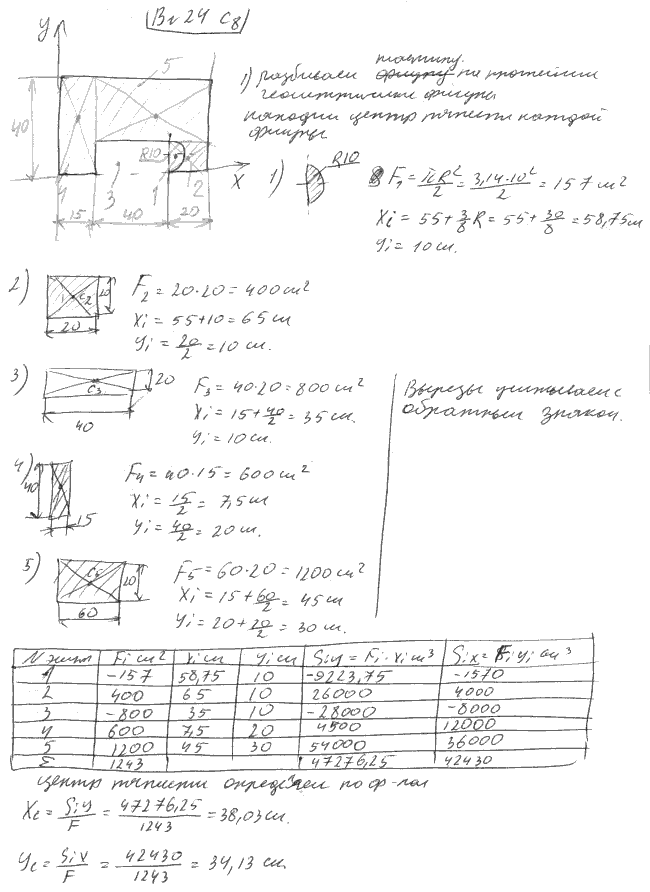 Вг 24 С8
y
5
40
R10
x
4
3
1
2
15
40
20
1) разбиваем пластину на простейшие
геометрические фигуры
находим центр тяжести каждой
фигуры
1)
R10
F₁ = πR²/2 = 3,14·10²/2 = 157 см²
Xi = 55 + 3/8 R = 55 + 30/8 = 58,75 см
Yi = 10 см.
2)
C2
20
20
F₂ = 20·20 = 400 см²
Xi = 55 + 10 = 65 см
Yi = 20/2 = 10 см.
3)
C3
20
40
F₃ = 40·20 = 800 см²
Xi = 15 + 40/2 = 35 см.
Yi = 10 см.
Вырезы учитываем с
обратным знаком.
4)
40
15
F₄ = 40·15 = 600 см²
Xi = 15/2 = 7,5 см
Yi = 40/2 = 20 см.
5)
C5
20
60
F₅ = 60·20 = 1200 см²
Xi = 15 + 60/2 = 45 см
Yi = 20 + 20/2 = 30 см.
Fi см² Xi см Yi см Siy = Fi·Xi см³ Six = Fi Yi см³
1 -157 58,75 10 -9223,75 -1570
2 400 65 10 26000 4000
3 -800 35 10 -28000 -8000
4 600 7,5 20 4500 12000
5 1200 45 30 54000 36000
Σ 1243 47276,25 42430
Центр тяжести определяем по ф-лам
Xc = Siy/F = 47276,25/1243 = 38,03 см.
Yc = Six/F = 42430/1243 = 34,13 см.